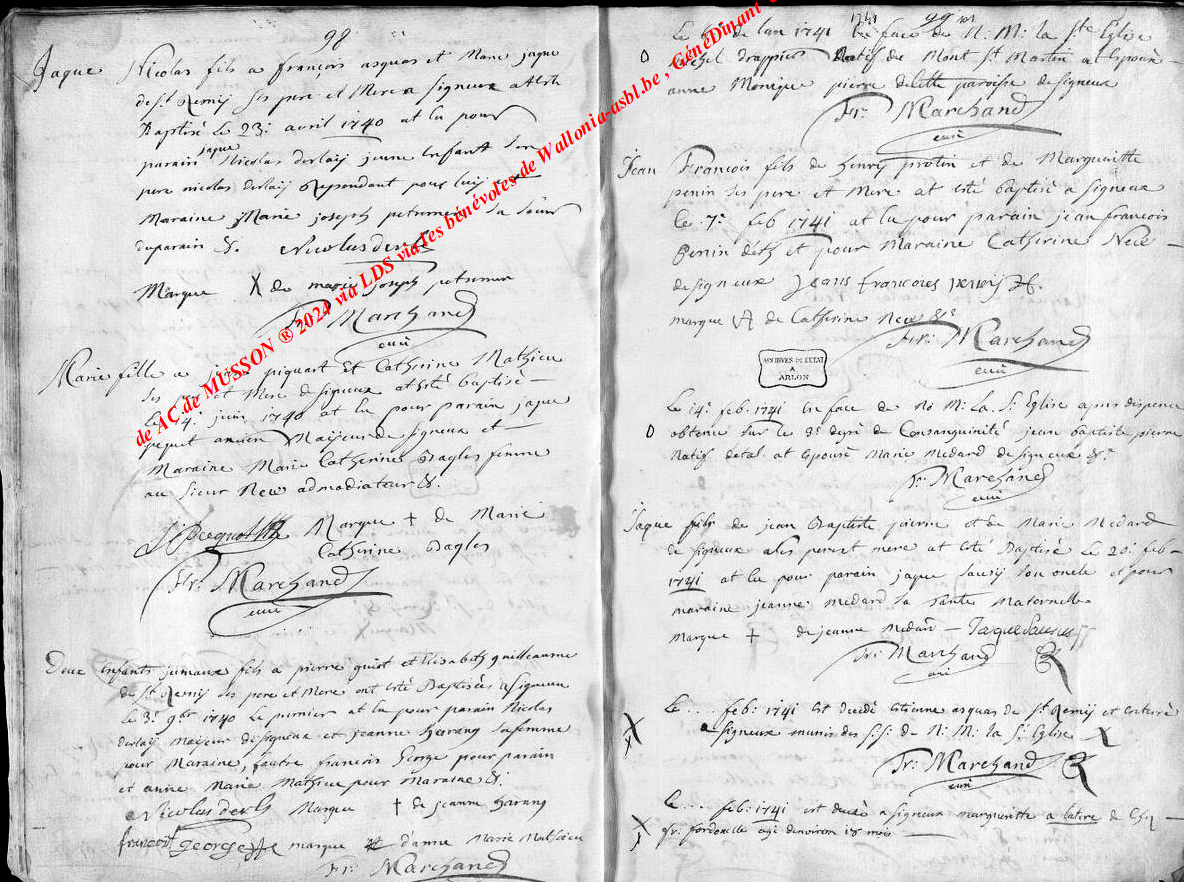 98
Jaque Nicolas fils a françois asquas et Marie jaque
de St Remÿ ses pere et Mere a signeux at este
Baptisé le 23e avril 1740 at lu pour
parain jaque Nicolas derlaÿ jeune Enfant son
pere nicolas derlaÿ Repondant pour luÿ et
Maraine Marie joseph
duparain &. Nicolas
Marque X de marie joseph
Fr: Marchand
curé
Marie fille a piquart et Catherine Mathieu
ses et Mere de signeux at esté baptisé
le 4e juin 1740 at lu pour parain jaque
pequet ancien Maÿeur de signeux et
Maraine Marie Catherine Bagles femme
au sieur New admodiateur &.
J Pecquet Marque + de Marie
Catherine Bagles
Fr: Marchand
curé
Deux Enfants jumaux fils a pierre guiot et Elisabeth guilleaume
de St Remÿ ses pere et Mere ont esté Baptisées a signeux
le 3e 9bre 1740 Le premier at lu pour parain Nicolas
derlaÿ Maÿeur de signeux et jeanne harang sa femme
pour Maraine, l'autre francois George pour parain
et anne Marie Mathieu pour Maraine &.
Nicolas Marque + de jeanne harang
françoi george marque d'anne Marie Mathieu
Fr: Marchand
1741
99
Le de lan 1741 En face de N: M: la Ste Eglise
drappier Natif du Mont St Martin at Epousé
anne Monique pierre de cette paroise de signeux
Fr: Marchand
curé
Jean François fils de henrÿ protin et de Margueritte
penin ses pere et Mere at esté baptisé a signeux
le 7e feb 1741 at lu pour parain jean francois
penin et pour Maraine Catherine New
de signeux Jeans francoies
marque de Catherine New &
Fr: Marchand
curé
ARCHIVES DE L'ETAT
A
ARLON
Le 14e feb. 1741 En face de No M: La. St Eglise apres dispence
obtenue sur le 3e degré de Consanguinité jean baptiste pierre
Natif at Epousé Marie Medard de signeux &
Fr: Marchand
curé
Jaque fils de jean Baptiste pierre et de Marie Medard
de signeux ses pere et mere at esté Baptisé le 20e feb
1741 at lu pour parain jaque son oncle et pour
maraine jeanne Medard sa Tante Maternelle
Marque + de jeanne Medard Jaque
Fr: Marchand
curé
Le .... feb: 1741 est decedé Etienne asquas de St Remÿ et enterré
a signeux munis des S:S: de N: M: la St Eglise
Fr: Marchand
curé
le .... feb: 1741 est decedé a signeux margueritte a latere de
fr. agé denviron 18 mois
de AC de MUSSON ® 2024 via LDS via les bénévoles de Wallonia-asbl.be , GénéDinant